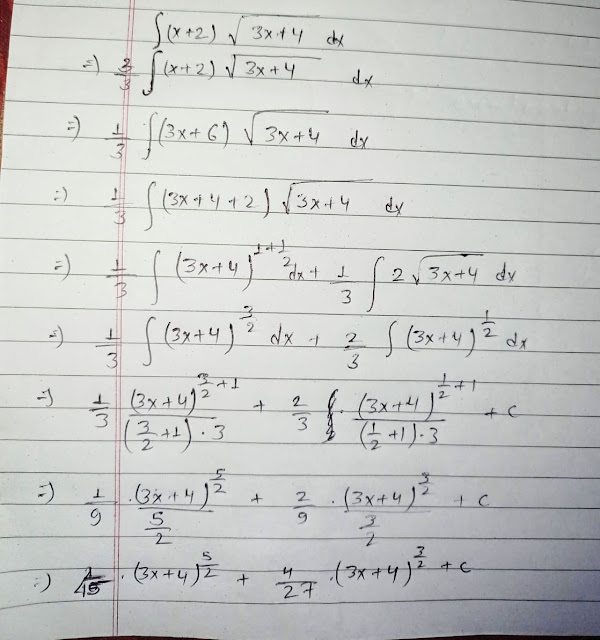 ∫(x+2) √3x+4 dx
=) 3/3 ∫(x+2) √3x+4 dx
=) 1/3 ∫(3x+6) √3x+4 dx
=) 1/3 ∫(3x+4+2) √3x+4 dx
=) 1/3 ∫ (3x+4)^(1+1/2) dx + 1/3 ∫ 2 √3x+4 dx
=) 1/3 ∫ (3x+4)^(3/2) dx + 2/3 ∫ (3x+4)^(1/2) dx
=) 1/3 (3x+4)^(3/2+1) / ((3/2+1)·3) + 2/3 · (3x+4)^(1/2+1) / ((1/2+1)·3) + c
=) 1/9 · (3x+4)^(5/2) / (5/2) + 2/9 · (3x+4)^(3/2) / (3/2) + c
=) 2/45 · (3x+4)^(5/2) + 4/27 · (3x+4)^(3/2) + c